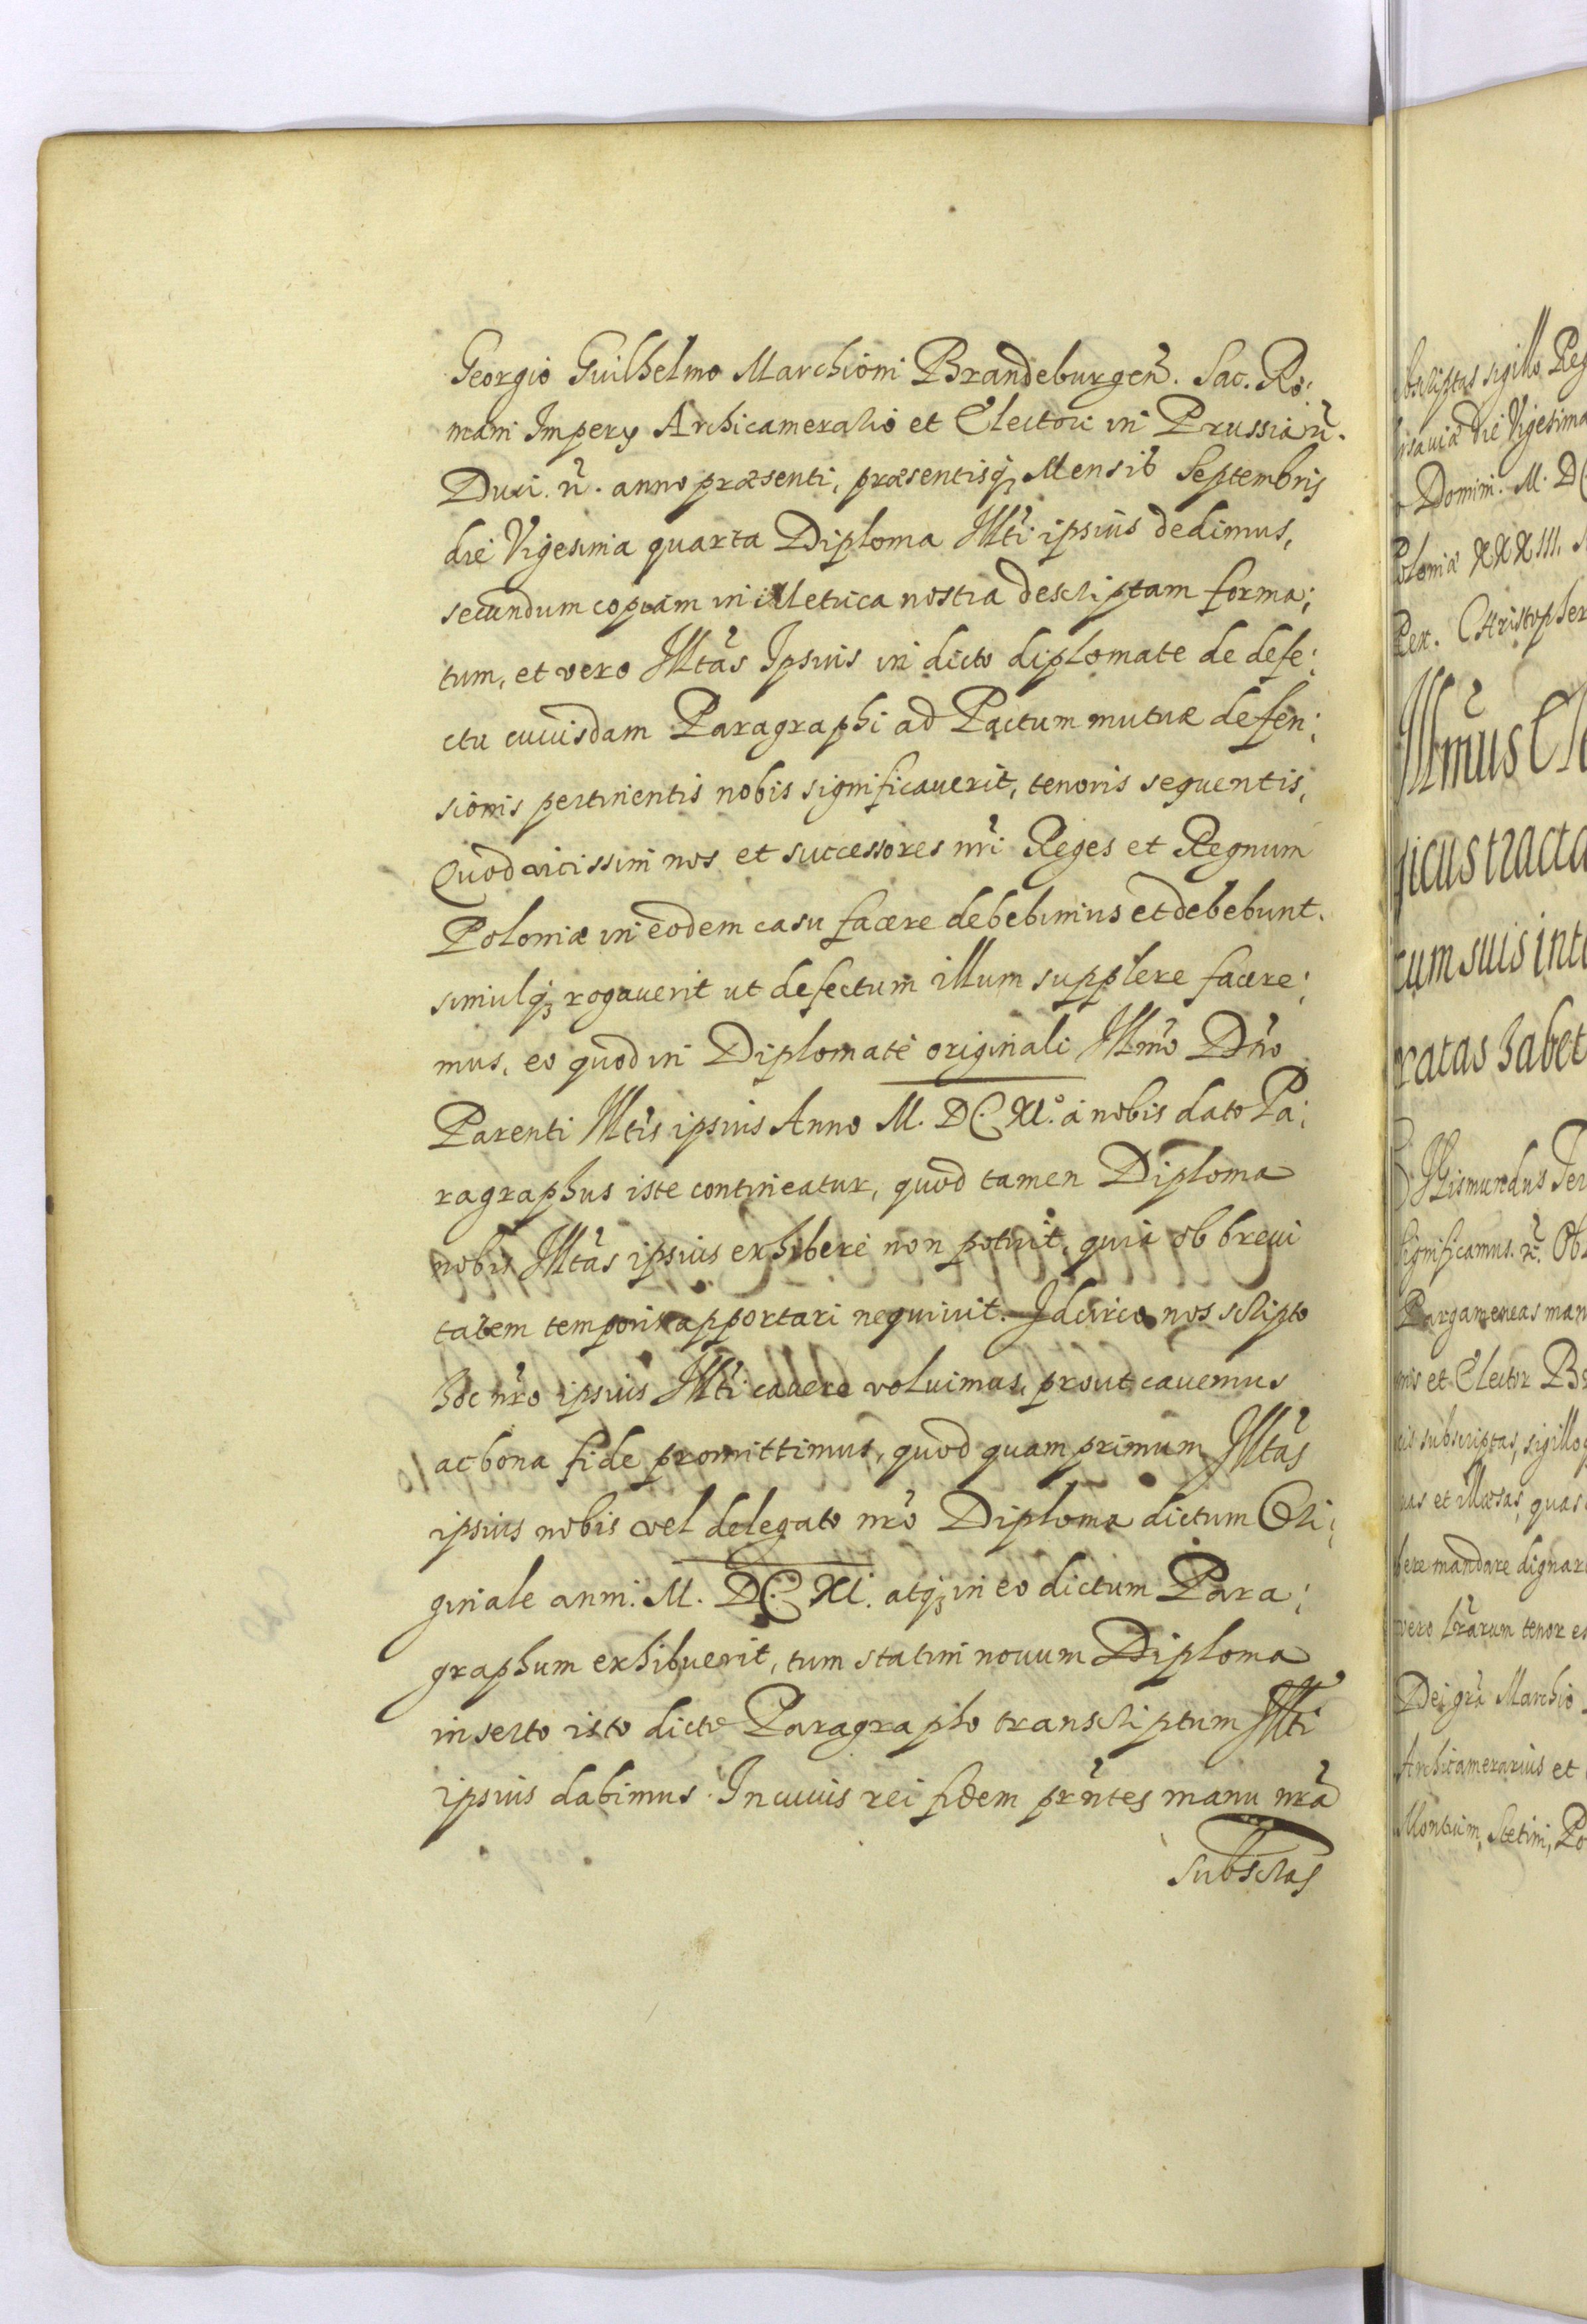 Georgio Guilhelmo Marchioni Brandeburgen̄. Sac. Ro:
mani Impery Archicamerario et Electori in Prussia n̄.
Duci. n̄. anno præsenti, præsentisq; Mensis Septembris
die Vigesima quarta Diploma Illti ipsius dedimus,
secundum copiam in Metrica nostra descriptam forma;
tum, et vero Illtas Ipsius in dicto diplomate de defe:
ctu cuiusdam Paragraphi ad Pactum mutuæ defen:
sionis pertinentis nobis significauerit, tenoris sequentis,
Quod vicissim nos et successores nr̄i Reges et Regnum
Poloniæ in eodem casu facere debebimus et debebunt.
simulq; rogauerit ut defectum illum supplere facere:
mus, eo quod in Diplomate originali Illm̄o Dn̄o
Parenti Illtis ipsius Anno M. DC. XI.° à nobis dato Pa:
ragraphus iste contineatur, quod tamen Diploma
nobis Illtas ipsius exhibere non potuit, quia ob breui
tatem temporis apportari nequiuit. Idcirco nos scripto
hoc nr̄o ipsius Illti cauere voluimus, prout cauemus
ac bona fide promittimus, quod quam primum Illtas
ipsius nobis vel delegato nr̄o Diploma dictum Ori:
ginale anni. M. DC. XI. atq; in eo dictum Para:
graphum exhibuerit, tum statim nouum Diploma
inserto isto dicto Paragrapho transcriptum Illti
ipsius dabimus. In cuius rei fidem prn̄tes manu nr̄a
subscras
sigillo Reg
die Vigesima
Domini. M. DC
Poloniæ XXXIII. S
Rex. Christopher
Illmus Ele
gicus tracta
cum suis inte
ratas habet
Sigismundus Ter
significamus. n̄. Ob
Pargameneas man
nis et Elector Br
subscriptas, sigilloq
nas et illæsas, quas
bere mandare dignar
vero lr̄arum tenor es
Dei gr̄a Marchio
Archicamerarius et
Montium, Stetini, Po